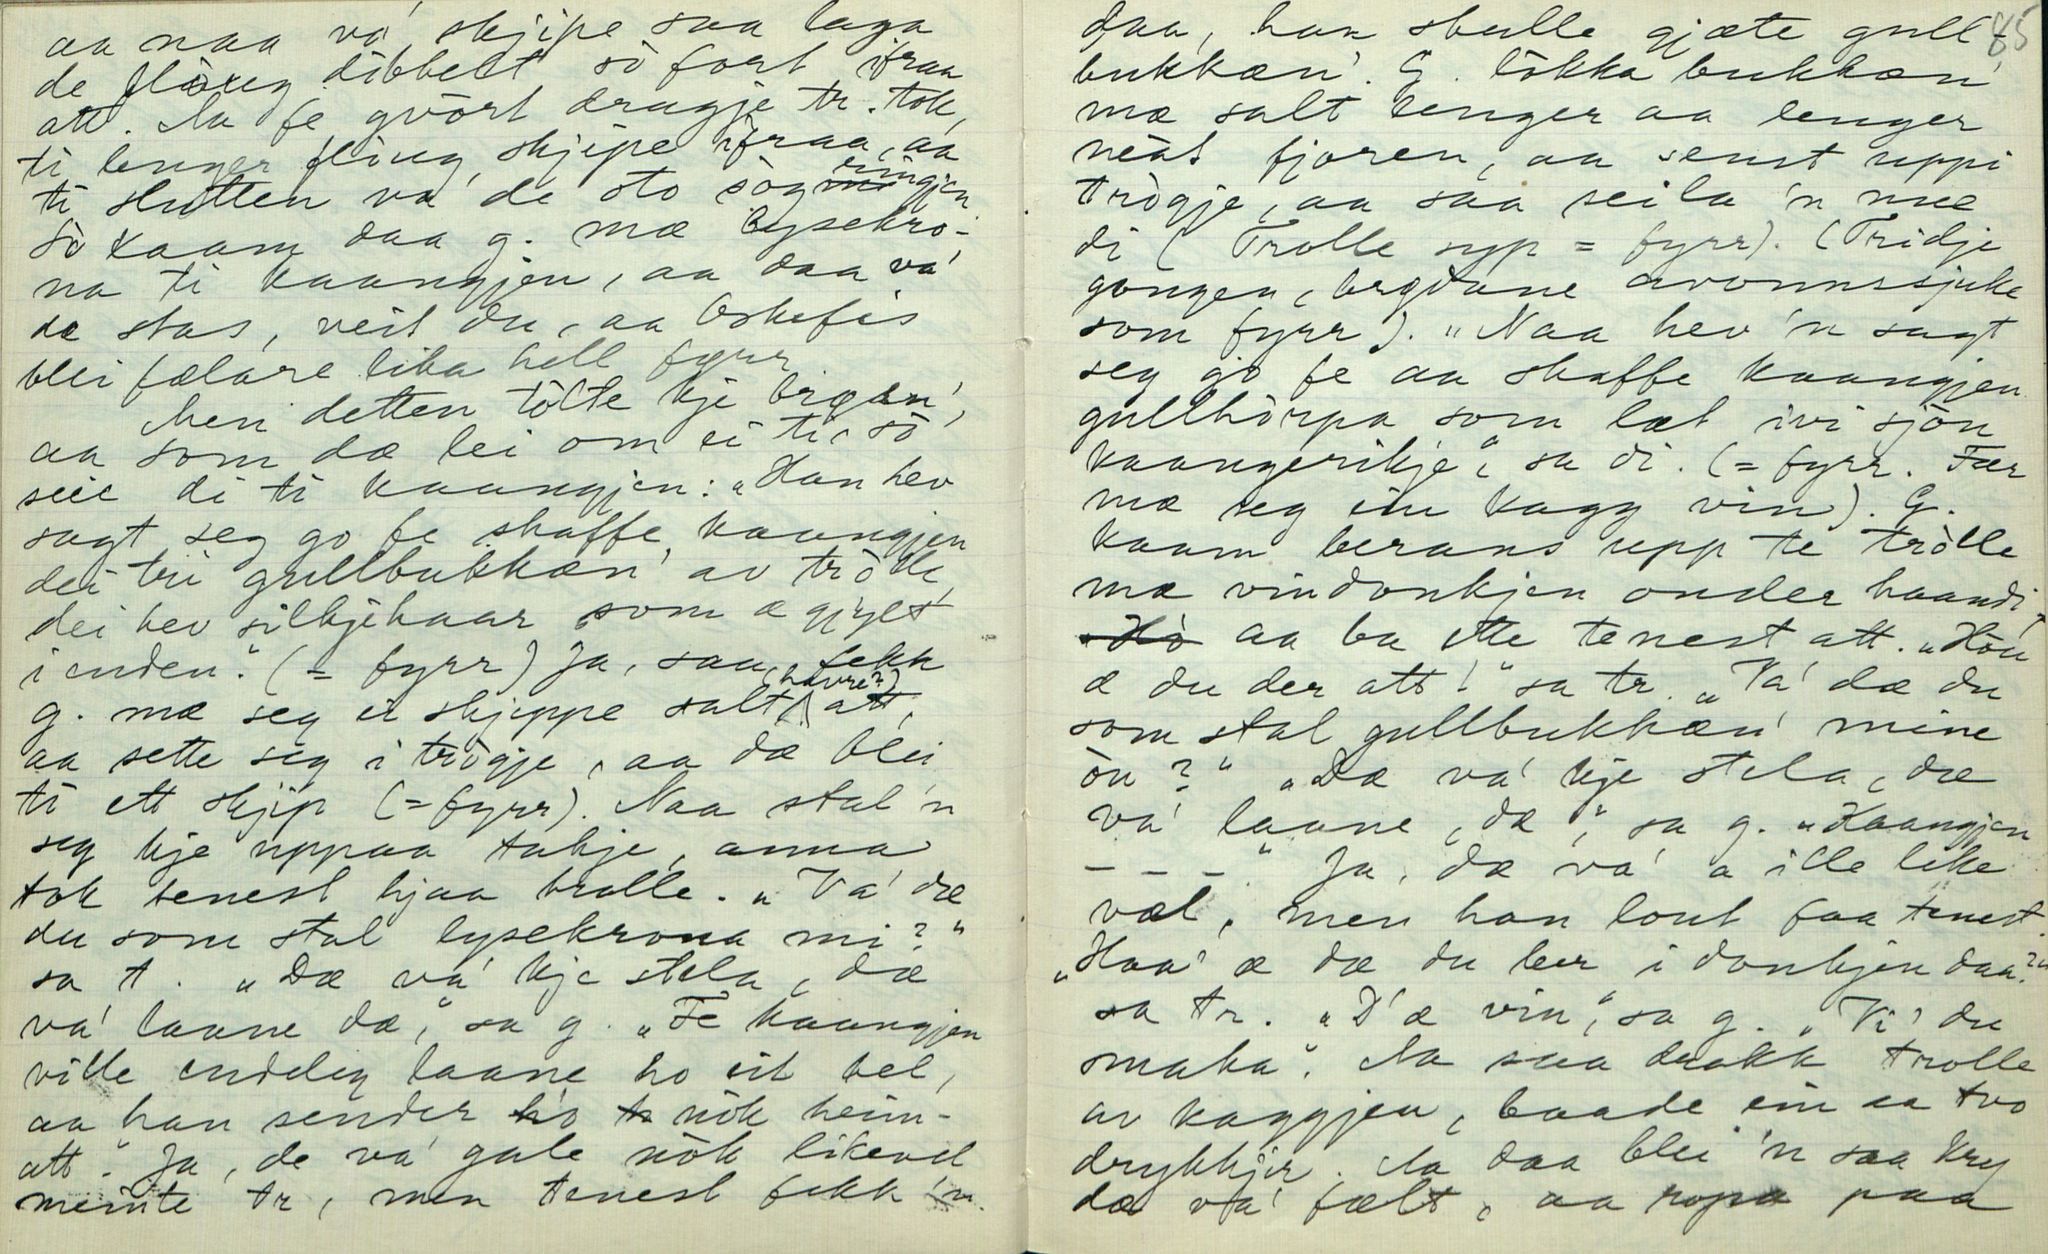 aa naa va' skjipe saa laga
de flaug dibbelt sò fort ifraa
att. Aa fe gvòrt dragje tr. tok,
ti lenger flaug skjipe ifraa, aa
ti slutten va' de sto sòg eingjen
Sò kaam daa g. mæ lysekro-
na ti kaangjen, aa daa va'
de stas, veit du, aa Oskefis
blei fælare lika hell fyrr
Men detten tòlte kje brøan',
aa som dæ lei om ei ti, sò
seie di ti kaangjen: "Han hev
sagt seg go fe skaffe kaangjen
dei tri gullbukkæn' av tròlle,
dei hev silkjehaar som æ gjylt
i enden." (= fyrr) Ja, saa fekk
g. mæ seg ei skjeppe salt (havre?) att,
aa sette seg i trògje, aa dæ blei
ti ett skjip (= fyrr). Naa stal 'n
seg kje uppaa takje, anna
tok tenest hjaa trolle. "Va' dæ
du som stal lysekrona mi?"
sa t. "Dæ va' kje stela, dæ
va' laane dæ," sa g. "Fe kaangjen
ville endeleg laane ho eit bel,
aa han sender ho nòk heim-
att." Ja, de va' gale nòk likevel
meinte tr, men tenest fekk 'n
85
daa, han skulle gjæte gull-
bukkæn'. G. lòkka bukkæn'
mæ salt lenger aa lenger
neat fjoren, aa senst uppi
trògje, aa saa seila 'n mæ
di (Trolle syp = fyrr). (Tridje
gongen, brøane avonnssjuke
som fyrr). "Naa hev 'n sagt
seg go fe aa skaffe kaangjen
gullhòrpa som læt ivi sjòu
kaangerikje", sa di. (= fyrr. Fær
mæ seg ein kagg vin). G.
kaam berans upp te tròlle
mæ vindonkjen onder haandi,
aa ba ette tenest att. "Hòu
æ du der att!" sa tr. "Va' dæ du
som stal gullbukkæn' mine
òu?" "Dæ va' kje stela, dæ
va' laane, dæ", sa g. "Kaangjen
- - - " Ja, dæ va' a ille like
væl, men han lout faa tenest.
"Haa' æ dæ du ber i donkjen daa?"
sa tr. "D'æ vin," sa g. "Vi' du
smaka". Aa saa drakk trolle
av kaggjen, baade ein aa tvo
drykkjir. Aa daa blei 'n saa kry
dæ va' fælt, aa ropa paa